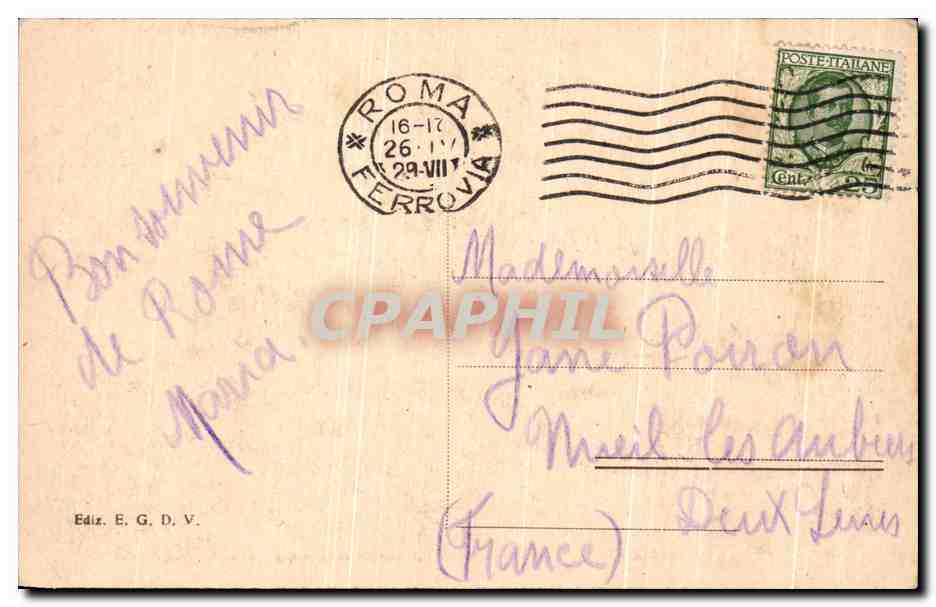 ROMA
16-17
26·IV
29-VII
FERROVIA
POSTE·ITALIANE
Cent. 25
Bon souvenir
de Rome
Maria.
Mademoiselle
Jane Poiron
Nueil les Aubiers
Deux Sèvres
(France)
CPAPHIL
Ediz. E. G. D. V.